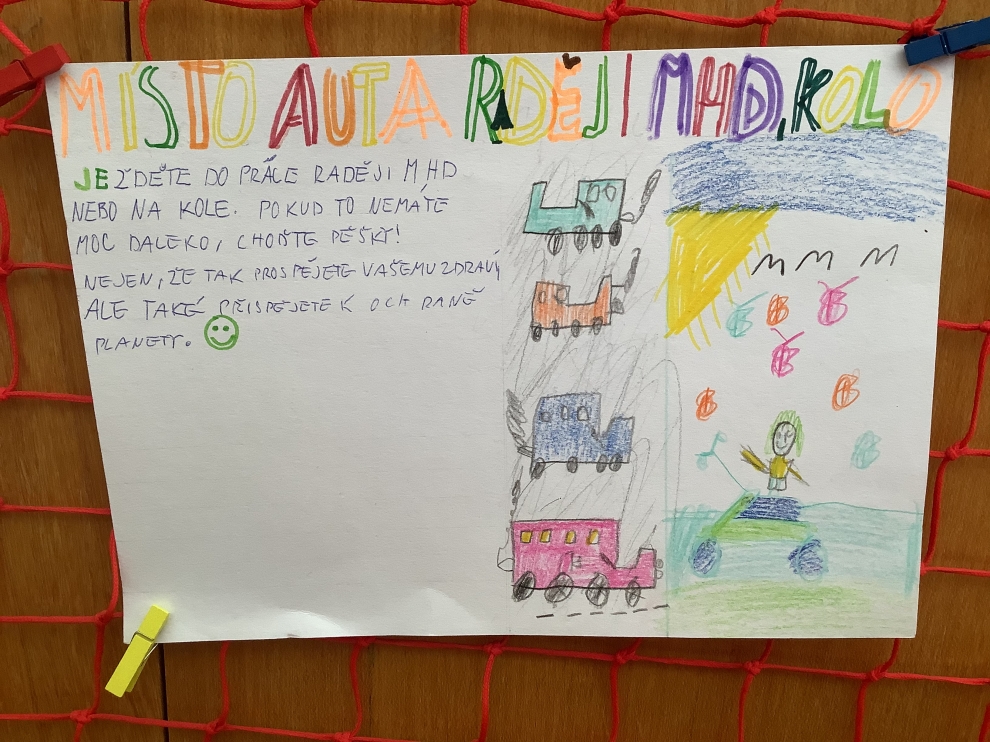 MÍSTO AUTA RADĚJI MHD, KOLO
JEŽDĚTE DO PRÁCE RADĚJI MHD
NEBO NA KOLE. POKUD TO NEMÁTE
MOC DALEKO, CHOĎTE PĚŠKY!
NEJEN, ŽE TAK PROSPĚJETE VAŠEMU ZDRAVÝ
ALE TAKÉ PŘISPĚJETE K OCHRANĚ
PLANETY.